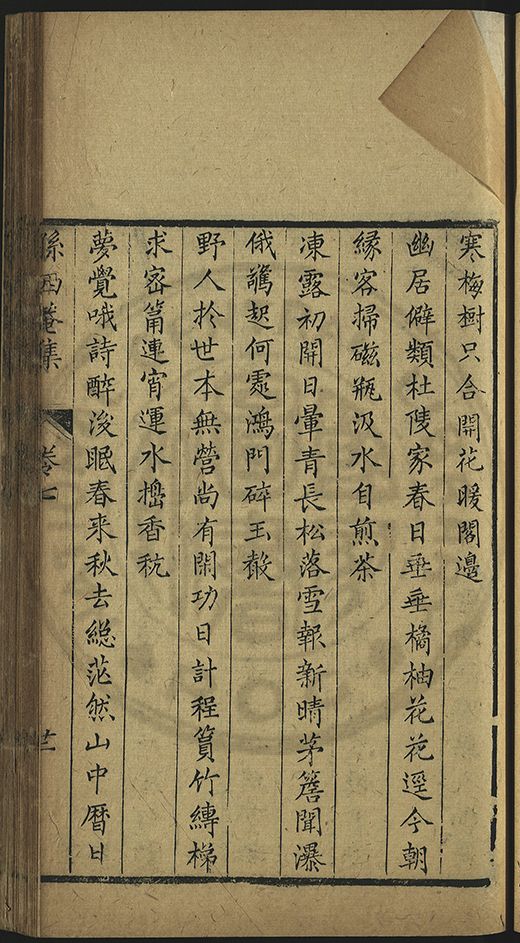 寒梅樹只合開花暖閣邊
幽居僻類杜陵家春日垂垂橘柚花花逕今朝
縁客掃磁瓶汲水自煎茶
凍露初開日暈青長松落雪報新晴茅簷聞瀑
俄驚起何處鴻門碎玉
野人於世本無營尚有閑功日計程篔竹縛梯
求密篅連宵運水搗香秔
夢覺哦詩醉後眠春来秋去緫茫然山中曆日
孫西菴集 卷七 廿一